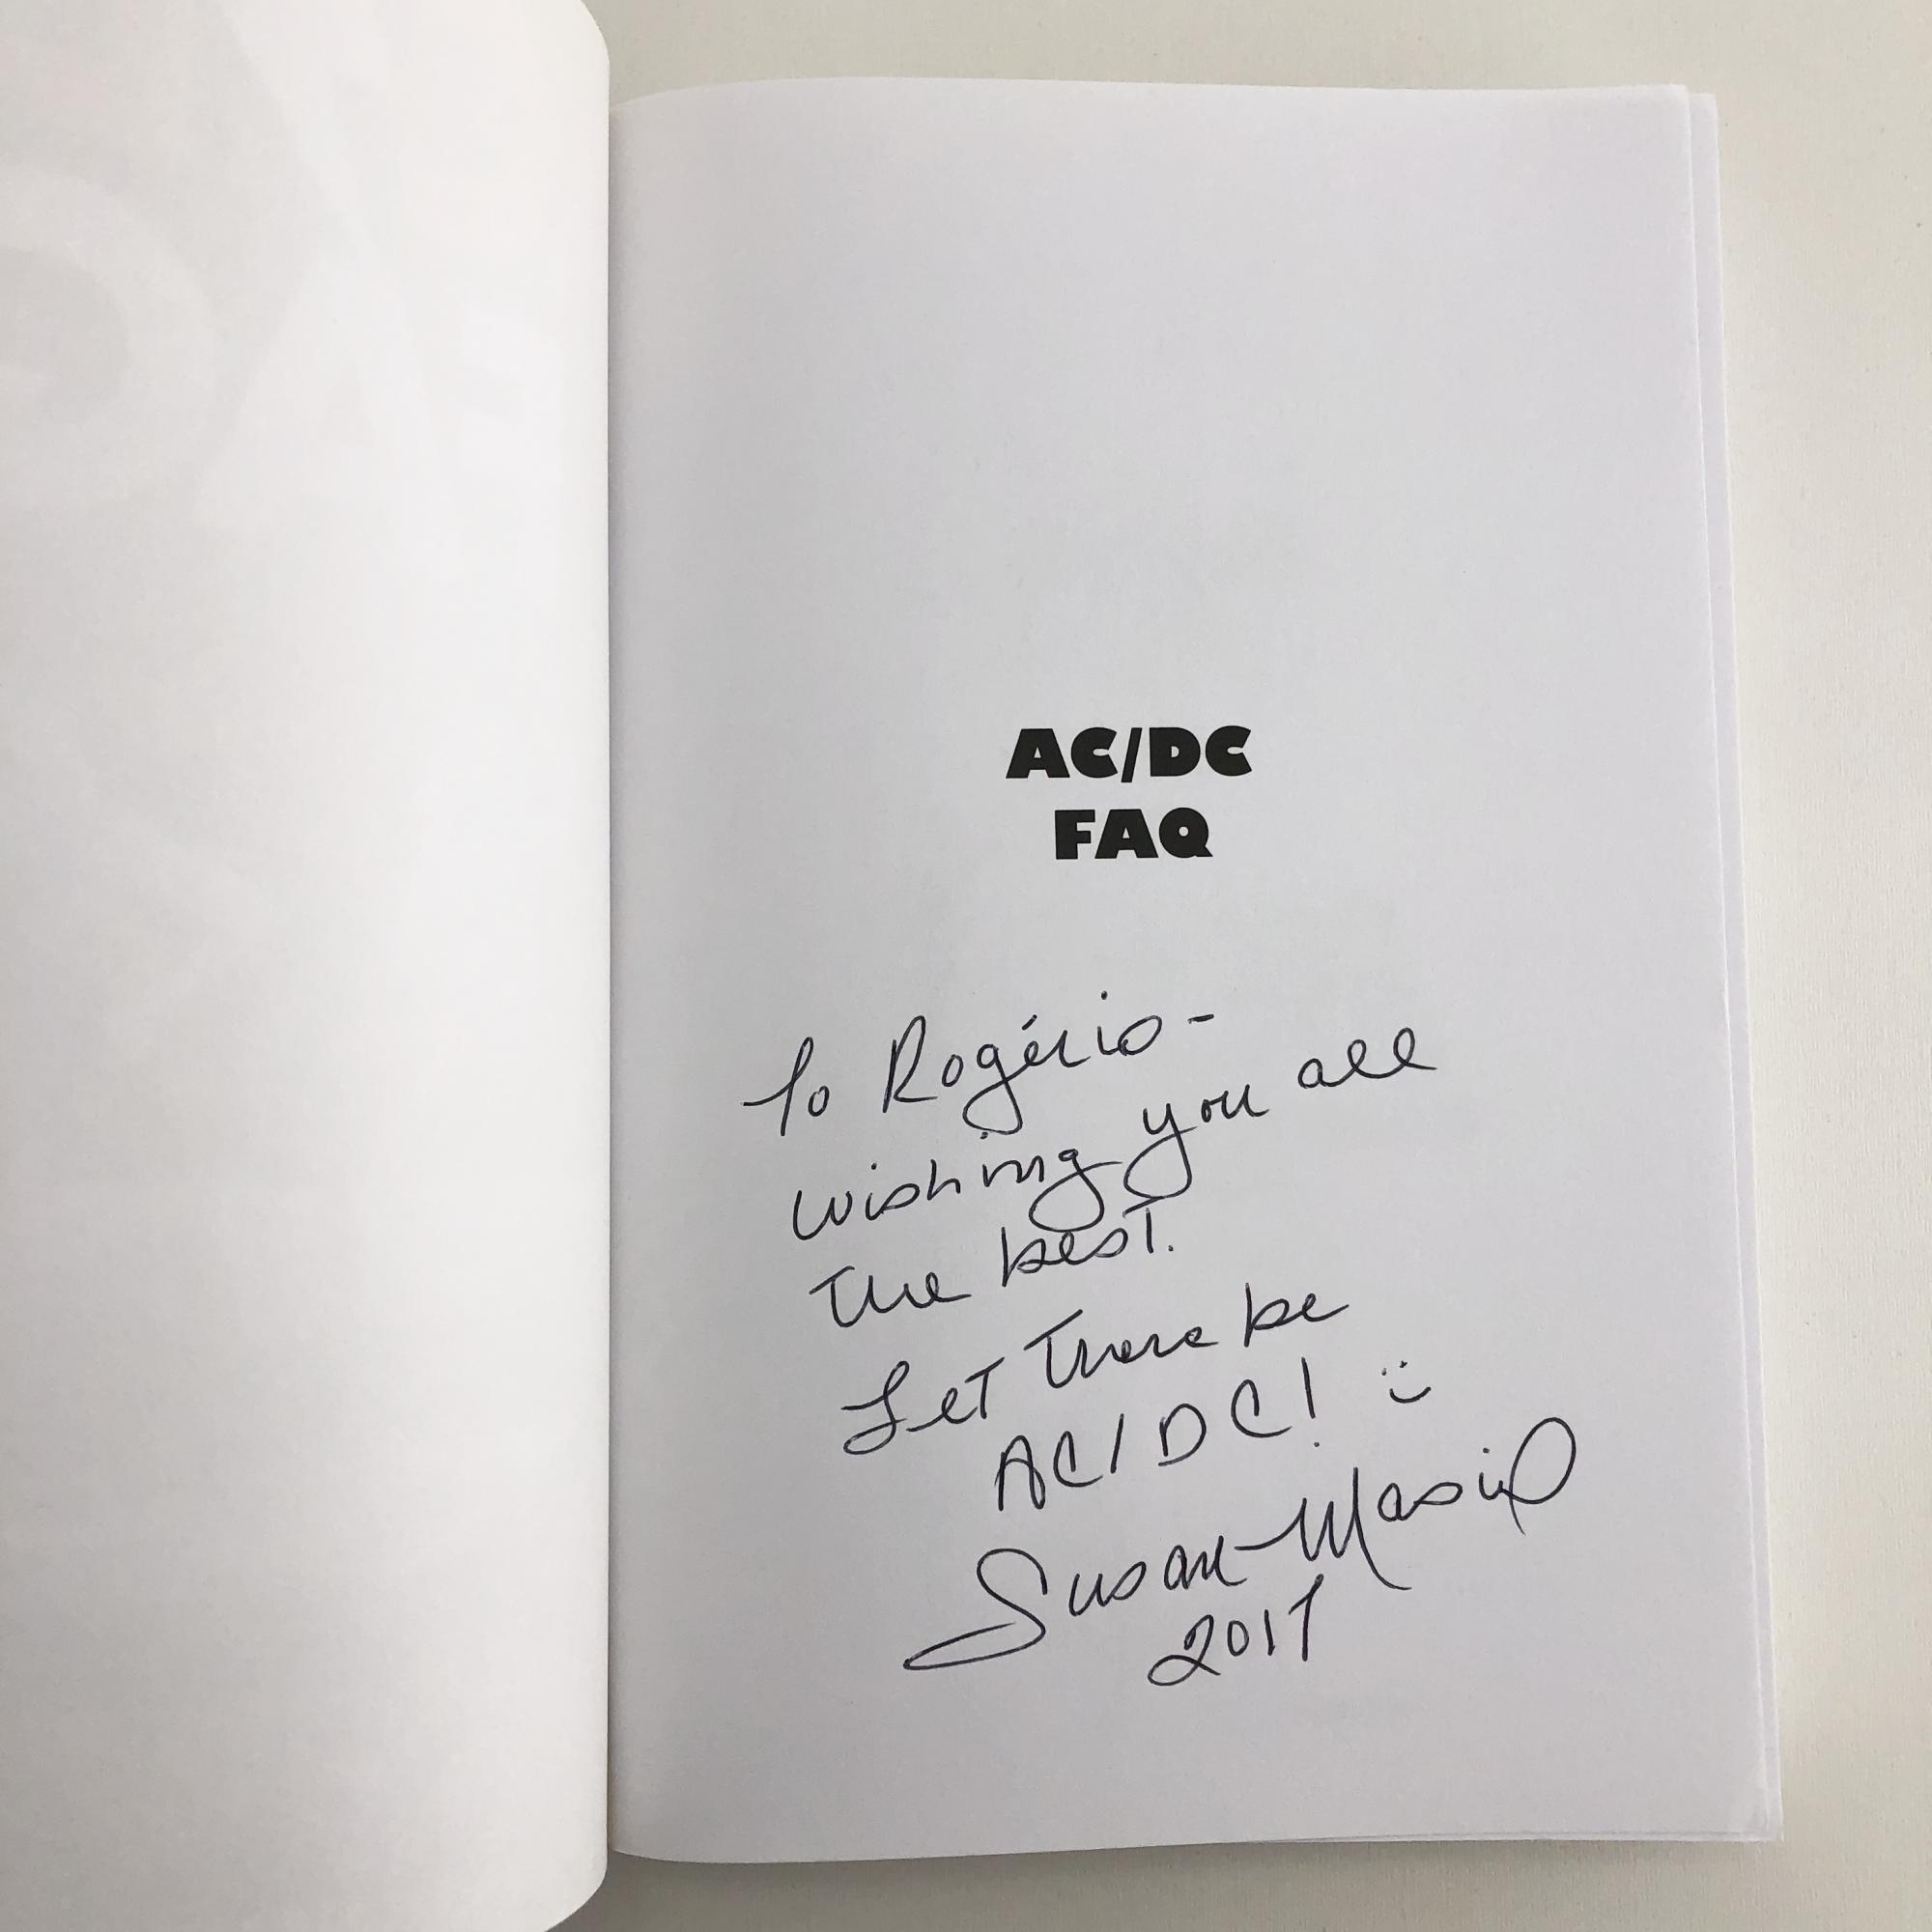 AC/DC
FAQ
To Rogério-
wishing you all
the best.
Let there be
AC/DC! :)
Susan Masino
2017